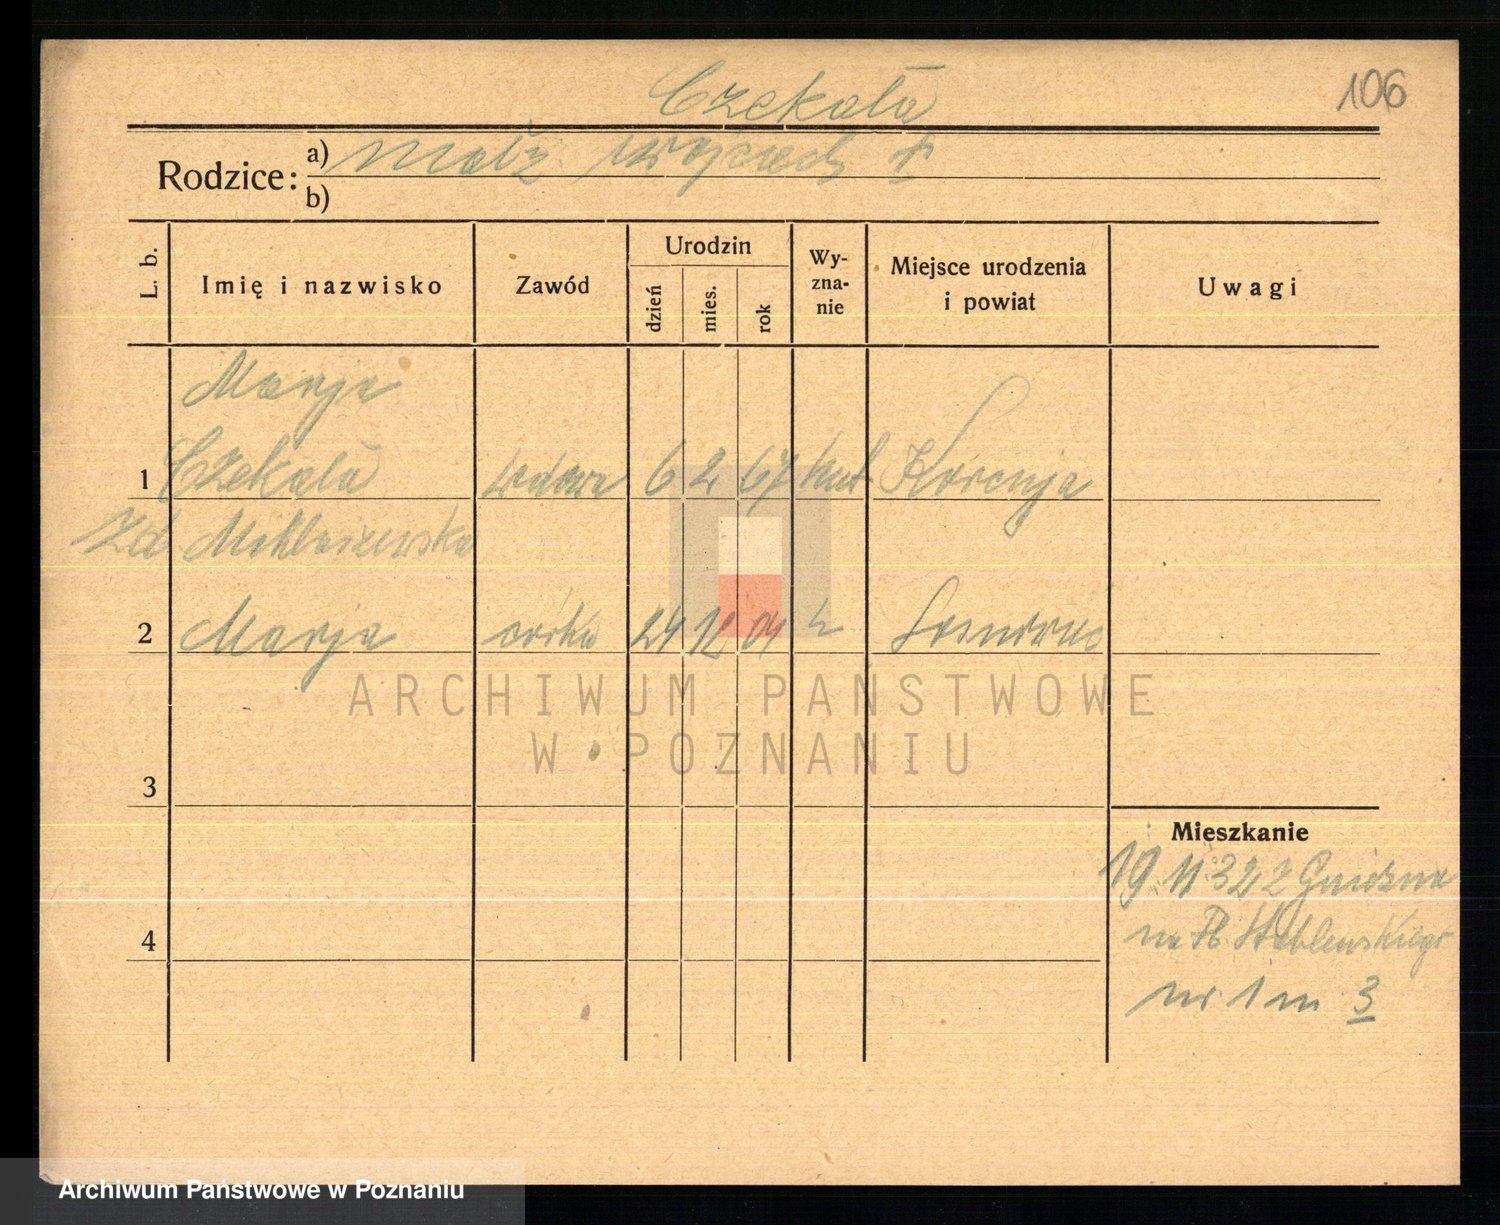 Czekała
106
Rodzice: a) Mąż Wojciech †
b)
L. b. Imię i nazwisko Zawód Urodzin dzień mies. rok Wy-zna-nie Miejsce urodzenia i powiat Uwagi
Marja
1 Czekała wdowa 6 2 67 kat
zd
2 Marja córka 24 12 04
3
4
Mieszkanie
19 11 32 z Gniezna
na Pl Stablewskiego
nr 1 m 3
ARCHIWUM PAŃSTWOWE
W POZNANIU
Archiwum Państwowe w Poznaniu